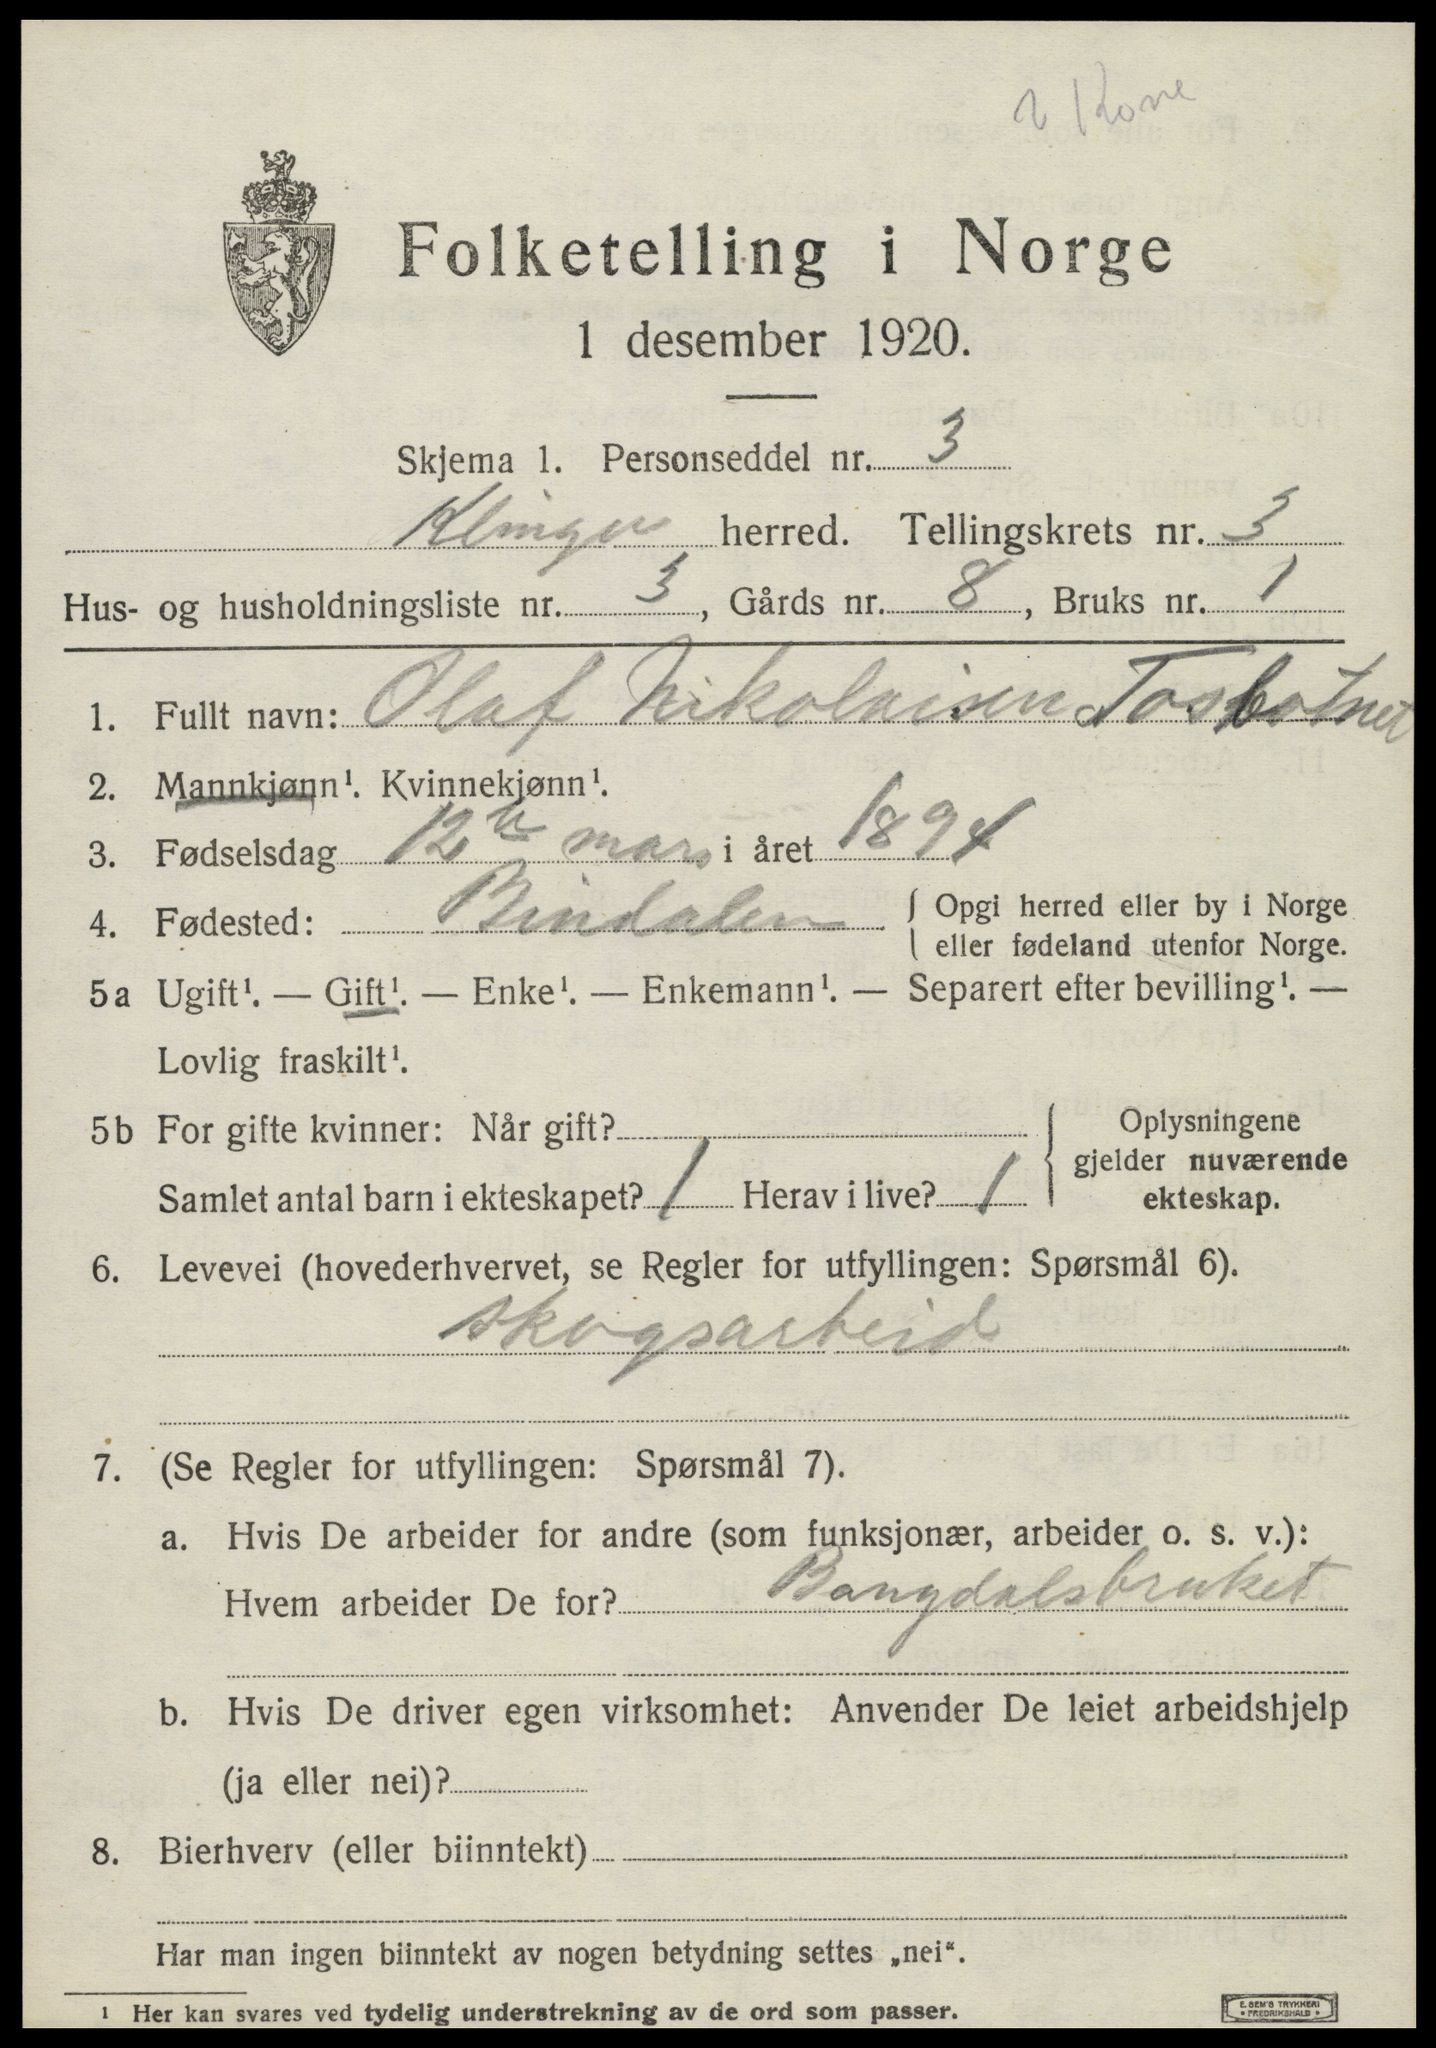 2 Kone
Folketelling i Norge
1 desember 1920.
Skjema 1. Personseddel nr. 3
Klinga herred. Tellingskrets nr. 3
Hus- og husholdningsliste nr. 3, Gårds nr. 8, Bruks nr. 1
1. Fullt navn: Olaf Nikolaisen Tosbotnet
2. Mannkjønn¹. Kvinnekjønn¹.
3. Fødselsdag 12te mars i året 1894
4. Fødested: Bindalen { Opgi herred eller by i Norge
eller fødeland utenfor Norge.
5a Ugift¹. — Gift¹. — Enke¹. — Enkemann¹. — Separert efter bevilling¹. —
Lovlig fraskilt¹.
5b For gifte kvinner: Når gift?
Samlet antal barn i ekteskapet? 1 Herav i live? 1
Oplysningene
gjelder nuværende
ekteskap.
6. Levevei (hovederhvervet, se Regler for utfyllingen: Spørsmål 6).
skogsarbeid
7. (Se Regler for utfyllingen: Spørsmål 7).
a. Hvis De arbeider for andre (som funksjonær, arbeider o. s. v.):
Hvem arbeider De for? Bangdalsbruket
b. Hvis De driver egen virksomhet: Anvender De leiet arbeidshjelp
(ja eller nei)?
8. Bierhverv (eller biinntekt)
Har man ingen biinntekt av nogen betydning settes „nei“.
¹ Her kan svares ved tydelig understrekning av de ord som passer.
E. SEM'S TRYKKERI
• FREDRIKSHALD •